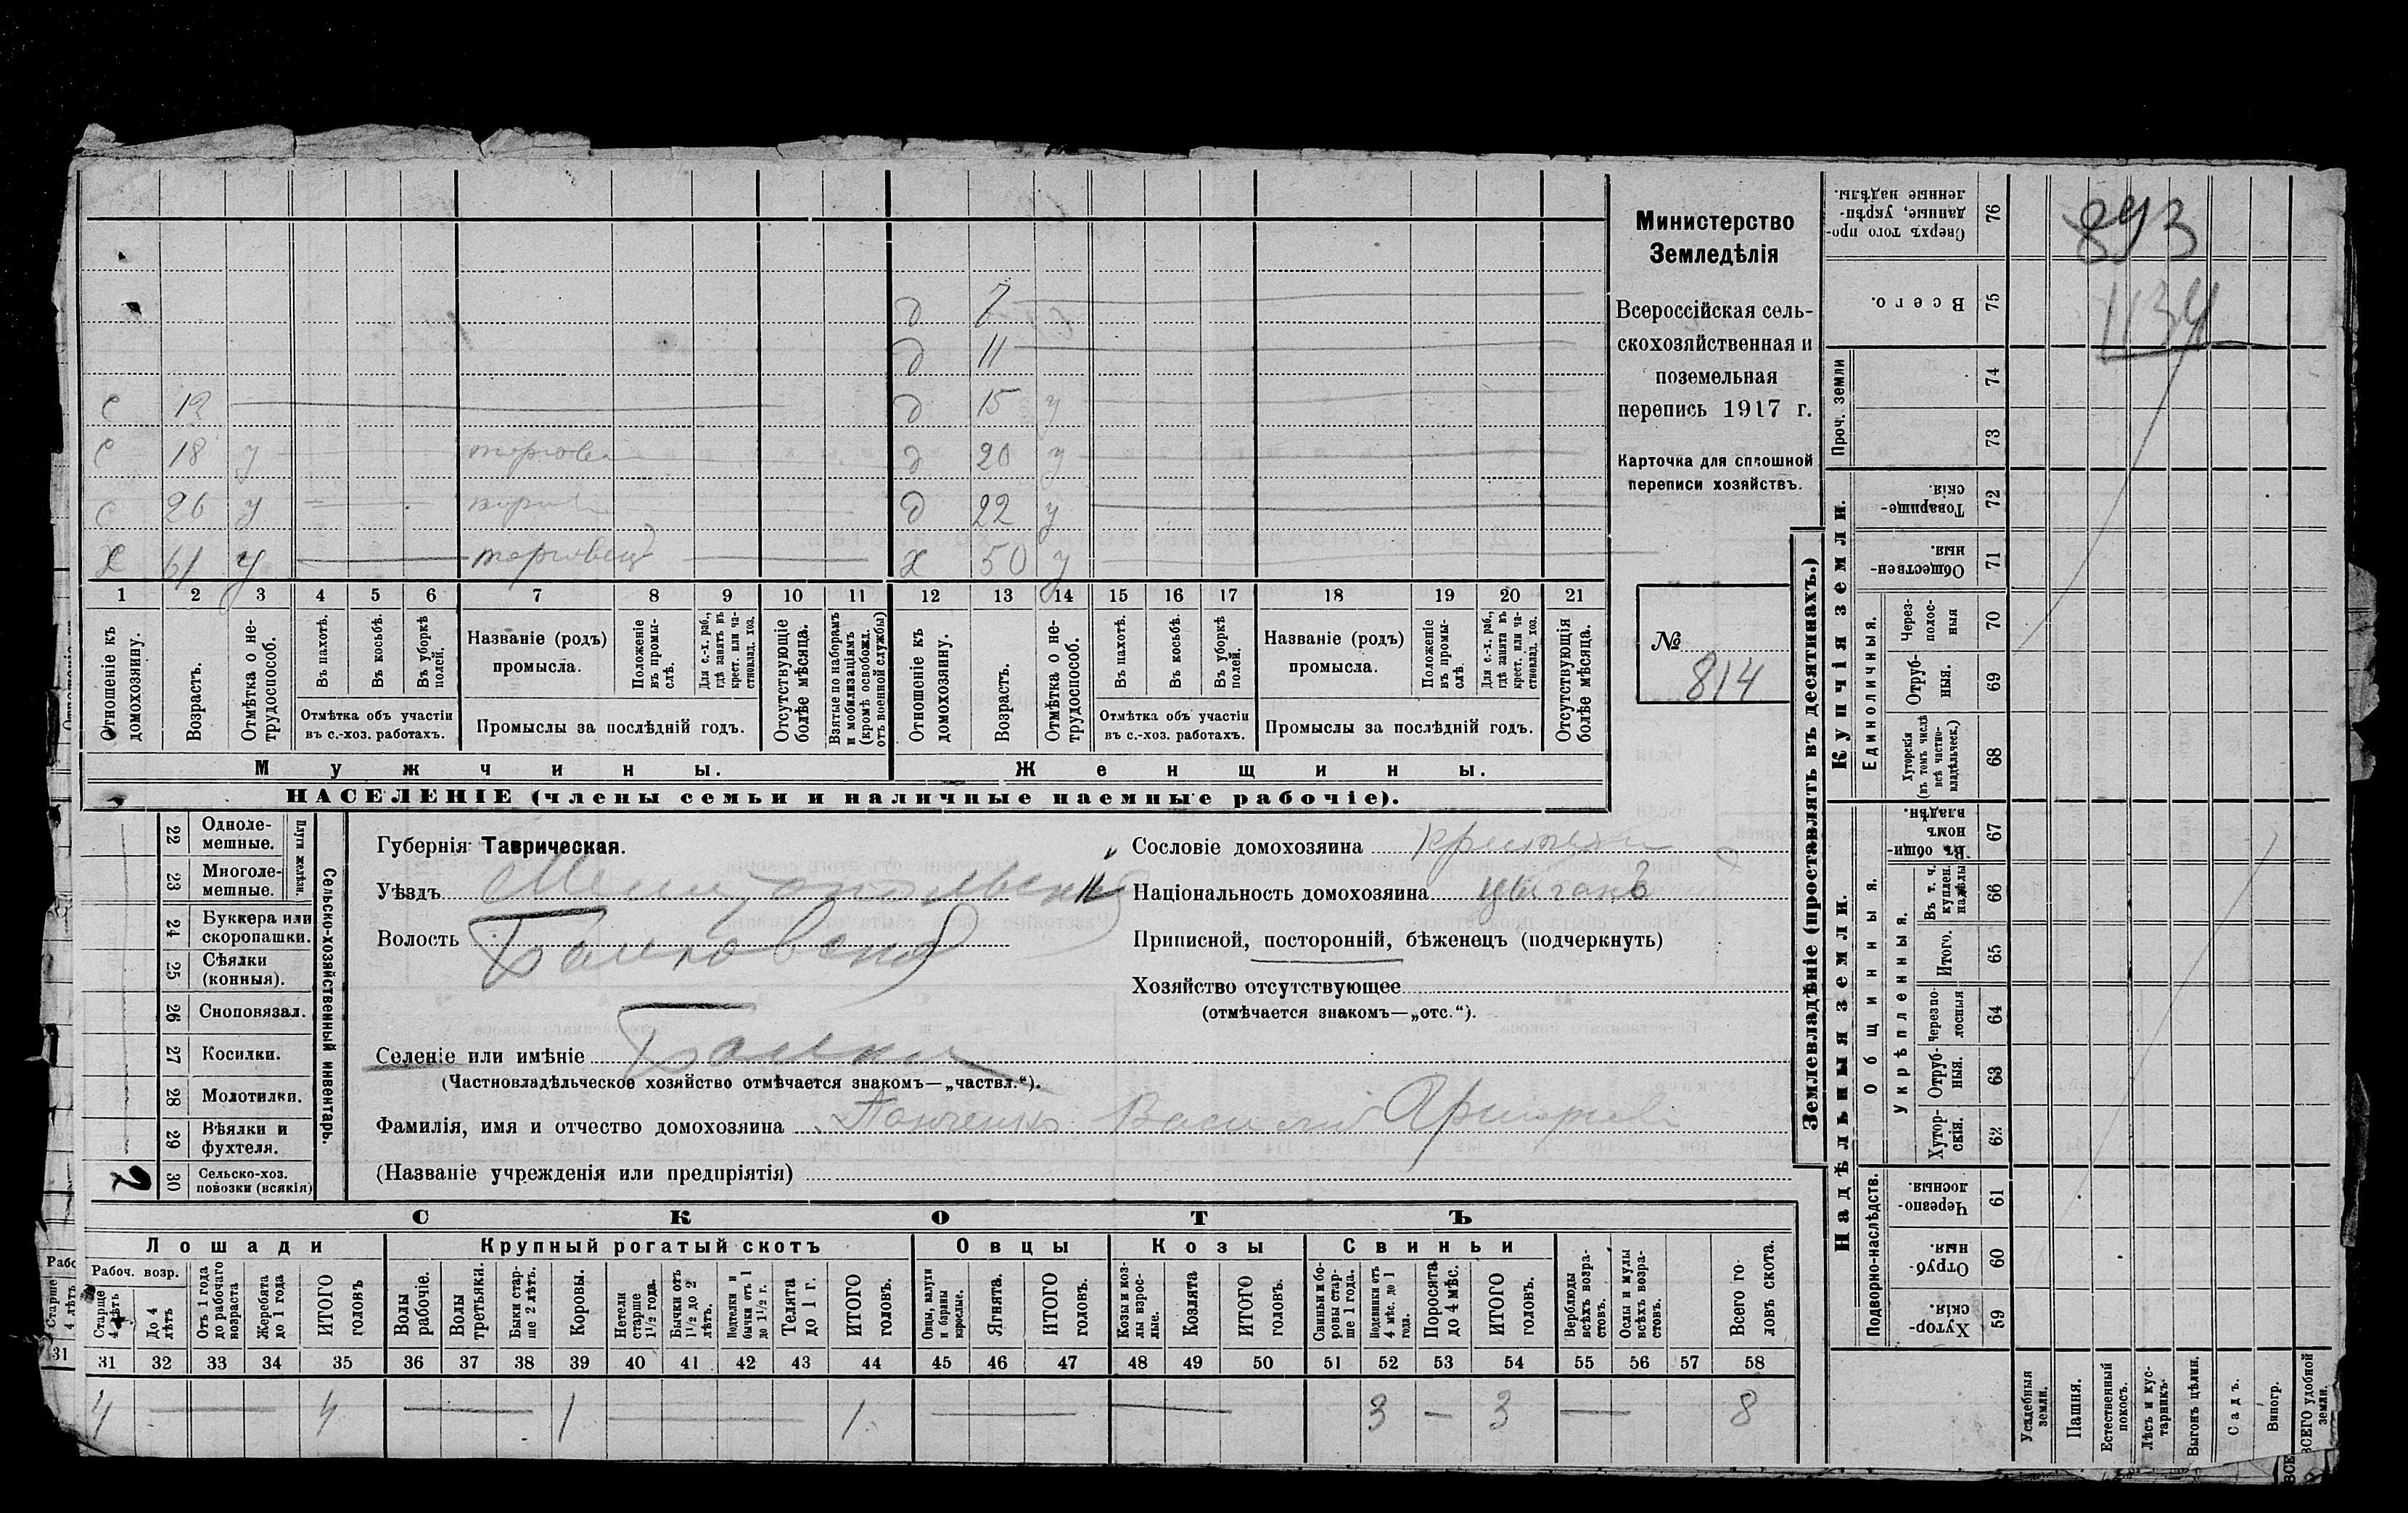 Министерство
Земледѣлія
Всероссійская сель-
скохозяйственная и
поземельная
перепись 1917 г.
Карточка для сплошной
переписи хозяйствъ.
№
814
д 7
д 11
с 13 д 15 у
с 18 у д 20 у
с 26 у д 22 у
х 61 у торговецъ х 50 у
1 2 3 4 5 6 7 8 9 10 11 12 13 14 15 16 17 18 19 20 21
Отношеніе къ домохозяину.
Возрастъ.
Отмѣтка о не-трудоспособ.
Въ пахотѣ.
Въ косьбѣ.
Въ уборкѣ полей.
Отмѣтка объ участіи
въ с.-хоз. работахъ.
Названіе (родъ)
промысла.
Положеніе въ промы-слѣ.
Для с.-х. раб., гдѣ занятъ въ крест. или ча-стновлад. хоз.
Промыслы за послѣдній годъ.
Отсутствующіе болѣе мѣсяца.
Взятые по наборамъ и мобилизаціямъ (кромѣ освобожд. отъ военной службы)
Отношеніе къ домохозяину.
Возрастъ.
Отмѣтка о не-трудоспособ.
Въ пахотѣ.
Въ косьбѣ.
Въ уборкѣ полей.
Отмѣтка объ участіи
въ с.-хоз. работахъ.
Названіе (родъ)
промысла.
Положеніе въ промы-слѣ.
Для с.-х. раб., гдѣ занята въ крест. или ча-стновлад. хоз.
Промыслы за послѣдній годъ.
Отсутствующія болѣе мѣсяца.
Мужчины.
Женщины.
НАСЕЛЕНІЕ (члены семьи и наличные наемные рабочіе).
Сельско-хозяйственный инвентарь.
Плуги желѣзн.
22 Одноле-
мешные.
23 Многоле-
мешные.
24 Буккера или
скоропашки.
25 Сѣялки
(конныя).
26 Сноповязал.
27 Косилки.
28 Молотилки.
29 Вѣялки и
фухтеля.
2 30 Сельско-хоз.
повозки (всякія)
Губернія Таврическая.
Уѣздъ Мелитопольскій
Волость Балковская
Селеніе или имѣніе Балки
(Частновладѣльческое хозяйство отмѣчается знакомъ—„частвл.“).
Фамилія, имя и отчество домохозяина Панченко Василий
(Названіе учрежденія или предпріятія)
Сословіе домохозяина
Національность домохозяина цыганъ
Приписной, посторонній, бѣженецъ (подчеркнуть)
Хозяйство отсутствующее
(отмѣчается знакомъ—„отс.“).
СКОТЪ
Лошади
Крупный рогатый скотъ
Овцы
Козы
Свиньи
Рабоч. возр.
Старше 4 лѣтъ
До 4 лѣтъ
Отъ 1 года до рабочаго возраста
Жеребята до 1 года
ИТОГО головъ
Волы рабочіе.
Волы третьяки.
Быки стар-ше 2 лѣтъ.
Коровы.
Нетели старше 1½ года.
Бычки отъ 1½ до 2 лѣтъ.
Подтелки и бычки отъ 1 до 1½ г.
Телята до 1 г.
ИТОГО головъ.
Овцы, валухи и бараны взрослые.
Ягнята.
ИТОГО головъ.
Козы и коз-лы взрос-лые.
Козлята
ИТОГО головъ.
Свиньи и бо-ровы стар-ше 1 года.
Подсвинки отъ 4 мѣс. до 1 года.
Поросята до 4 мѣс.
ИТОГО головъ.
Верблюды всѣхъ возра-стовъ.
Ослы и мулы всѣхъ возра-стовъ.
Всего го-ловъ скота.
31 32 33 34 35 36 37 38 39 40 41 42 43 44 45 46 47 48 49 50 51 52 53 54 55 56 57 58
4 — 4 — 1 — 1 — — 3 — 3 — 8
893
1134
Землевладѣніе (проставлять въ десятинахъ.)
Купчія земли.
Надѣльныя земли.
Сверхъ того про-данные, укрѣп-ленные надѣлы. 76
Всего. 75
Проч. земли
74
73
Товарище-скія. 72
Обществен-ныя. 71
Единоличныя.
Через-полос-ныя 70
Отруб-ныя. 69
Хуторскія (въ томъ числѣ всѣ частно-владѣльческ.) 68
Общинныя.
Въ общин-номъ владѣн. 67
Укрѣпленныя.
Въ т. ч. куплен. надѣлы 66
Итого. 65
Черезпо-лосныя 64
Отруб-ныя. 63
Хутор-скія. 62
Подворно-наслѣдств.
Черезпо-лосныя. 61
Отруб-ныя. 60
Хутор-скія. 59
Усадебныя земли.
Пашня.
Естественный покосъ.
Лѣсъ и кус-тарникъ.
Выгонъ цѣлин.
Садъ.
Виногр.
ВСЕГО удобной земли.